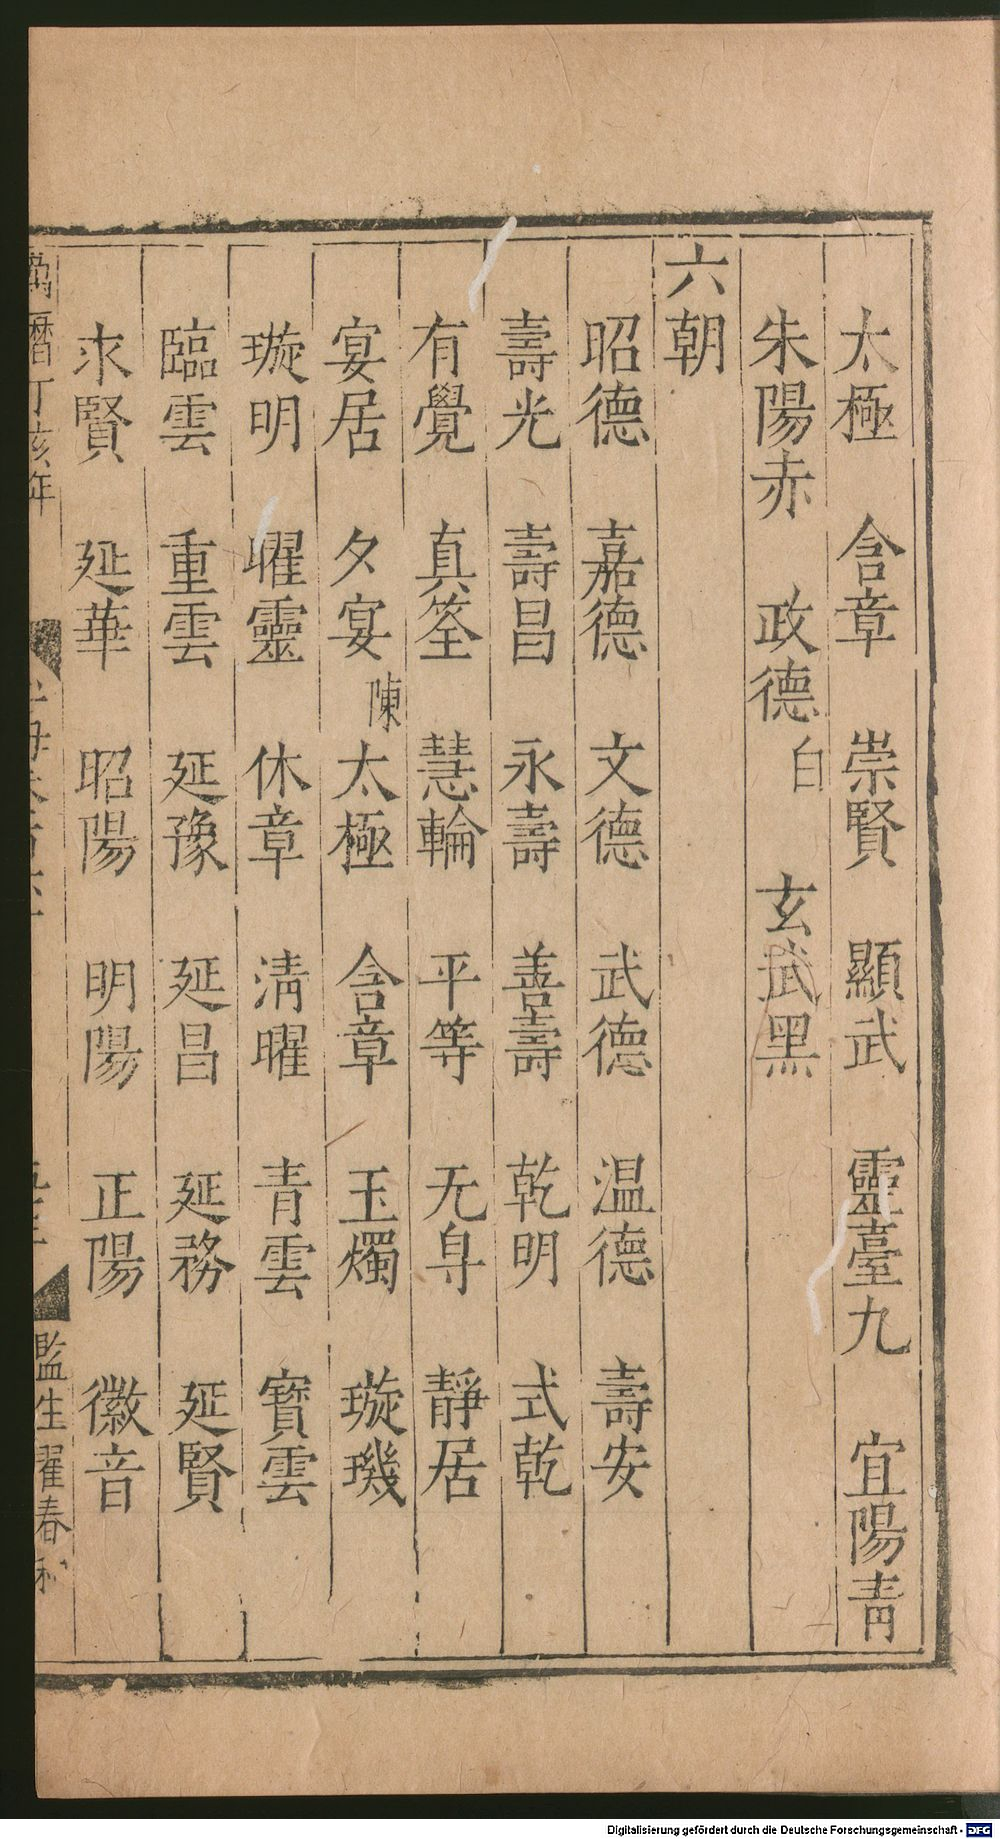 太極 含章 崇賢 顯武 靈臺九 宜陽青
朱陽赤 政德白 玄武黑
六朝
昭德 嘉德 文德 武德 温德 壽安
壽光 壽昌 永壽 善壽 乾明 式乾
有覺 真筌 慧輪 平等 无㝵 靜居
宴居 夕宴 陳 太極 含章 玉燭 璇璣
璇明 曜靈 休章 清曜 青雲 寶雲
臨雲 重雲 延豫 延昌 延務 延賢
求賢 延華 昭陽 明陽 正陽 徽音
萬曆丁亥年
監生翟春
Digitalisierung gefördert durch die Deutsche Forschungsgemeinschaft - DFG